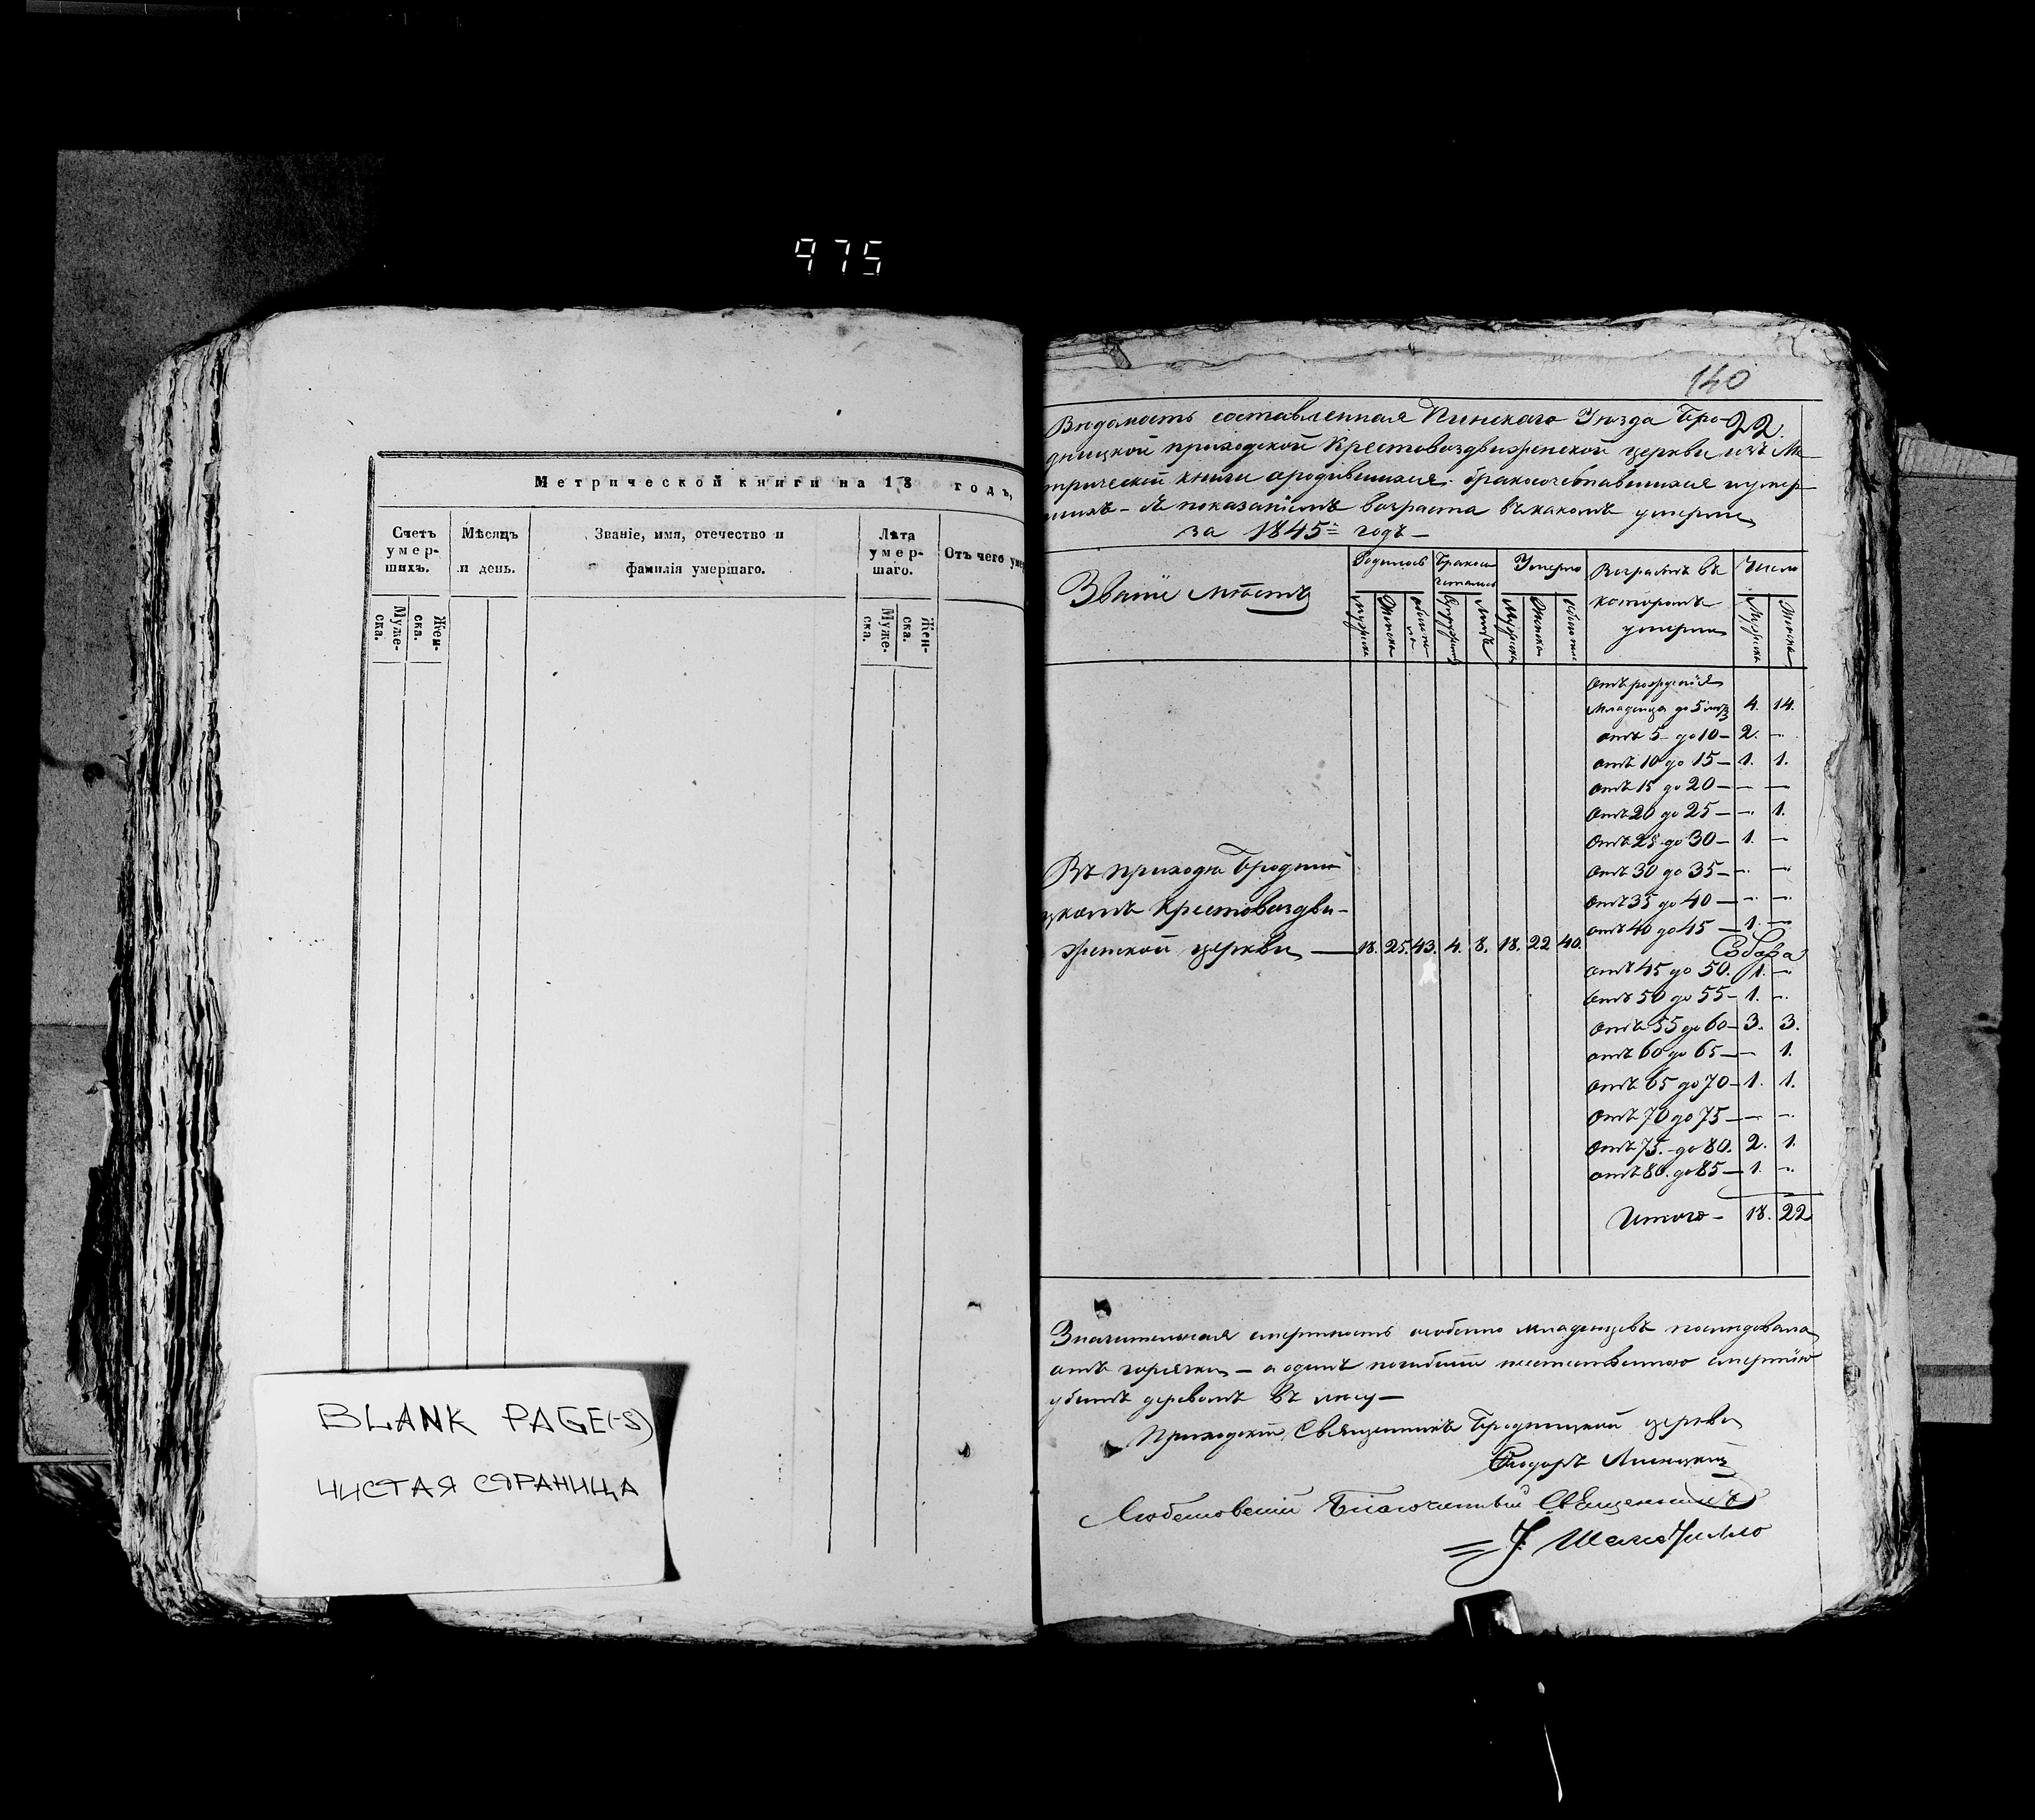 975
Метрической книги на 18 годъ,
Счетъ умер-шихъ.
Мѣсяцъ и день.
Званіе, имя, отечество и фамилія умершаго.
Лѣта умер-шаго.
Отъ чего уме
Муже-ска.
Жен-ска.
Муже-ска.
Жен-ска.
BLANK PAGE(-S)
ЧИСТАЯ СТРАНИЦА
140
Вѣдомость составленная Пинскаго Уѣзда Бро-
22.
дницкой приходской Крестовоздвиженской церкви изъ Ме-
трической книги о родившихся бракосочетавшихся и умер-
шихъ – съ показаніемъ возраста въ какомъ умерли
за 1845й годъ –
Званіе мѣстъ
Родилось
Бракосо-четалось
Умерло
Возрастъ въ которомъ умерли
Число
Мужска
Женска
обоего пола
Супружествъ
Лицъ
Мужска
Женска
обоего пола
Мужска
Женска
Отъ рожденія
Младенца до 5 лѣтъ 4. 14.
отъ 5 – до 10 – 2. –
отъ 10 до 15 – 1. 1.
отъ 15 до 20 – – –
Отъ 20 до 25 – – 1.
Отъ 25 до 30 – 1. –
Отъ 30 до 35 – – –
Отъ 35 до 40 – – –
отъ 40 до 45 – 1. –
Въ приходѣ Бродни
цкомъ Крестовоздви-
женской церкви – 18. 25. 43. 4. 8. 18. 22 40.
отъ 45 до 50. 1. –
отъ 50 до 55 – 1. –
Отъ 55 до 60 – 3. 3.
отъ 60 до 65 – – 1.
отъ 65 до 70 – 1. 1.
Отъ 70 до 75 – – –
Отъ 75. – до 80. 2. 1.
отъ 80. до 85 – 1. –
Итого – 18. 22
Значительная смертность особенно младенцевъ послѣдовала
отъ горячки – а одинъ погибшій неестественною смертію
убитъ деревомъ въ лѣсу –
Приходскій Священникъ Бродницкой церкви
Ѳеодоръ
Любешовскій Благочинный Священникъ